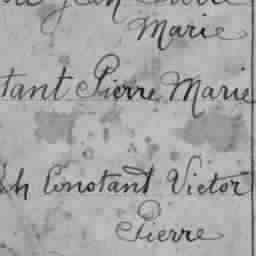 Jean Pierre
Marie
tant Pierre Marie
h Constant Victor
Pierre